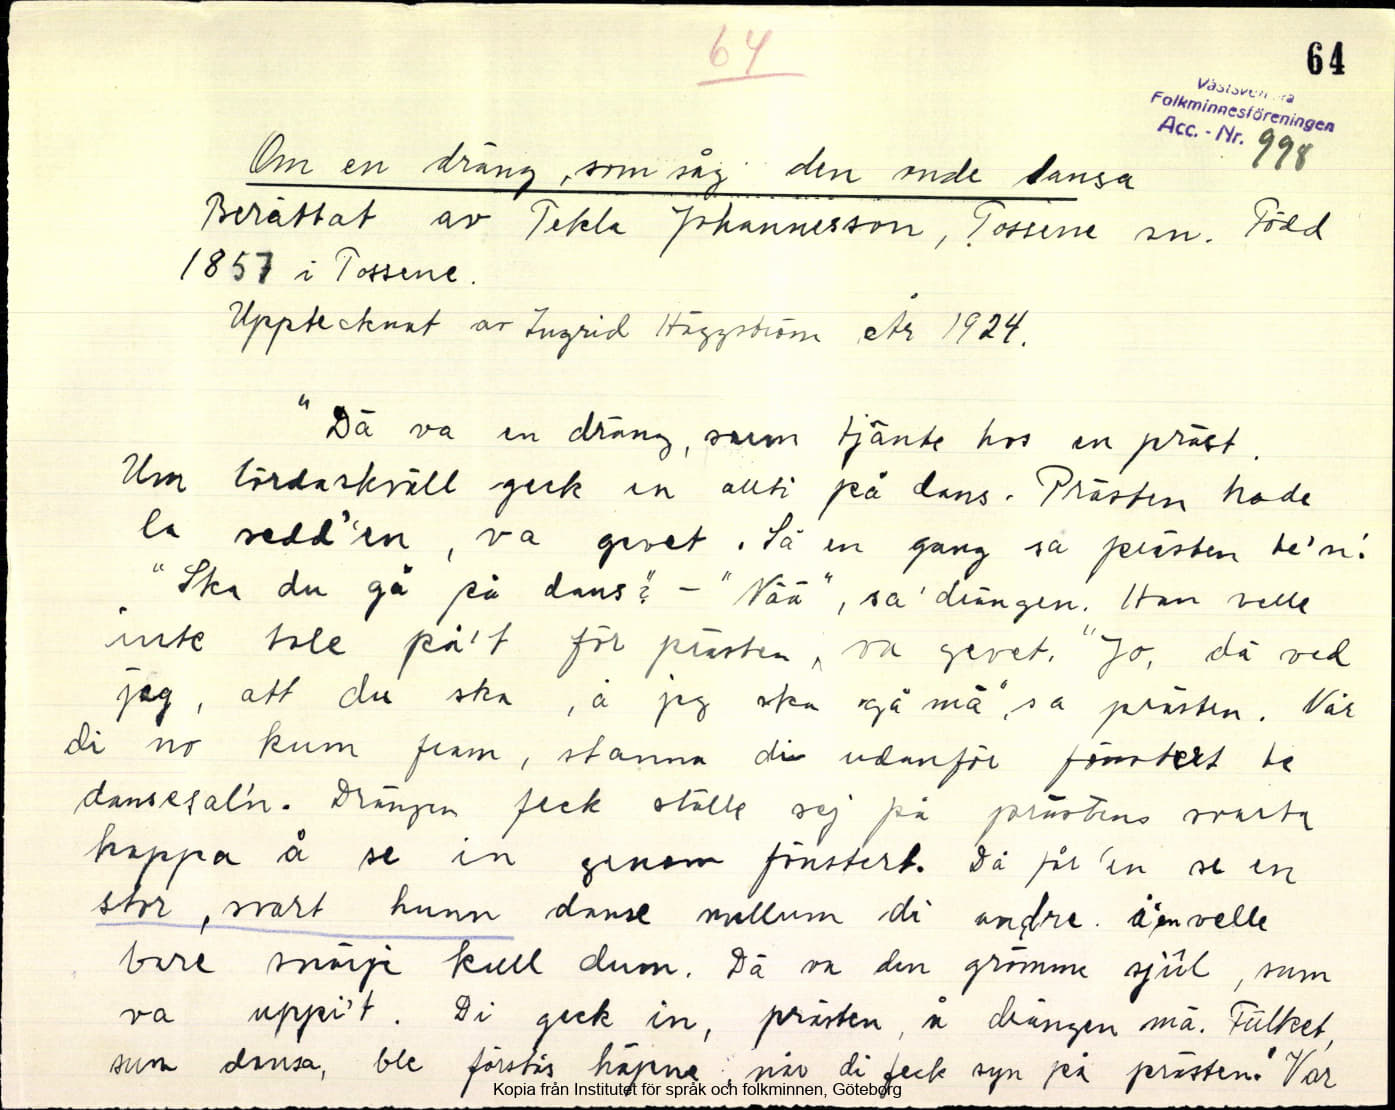 64
64
Västsvenska
Folkminnesföreningen
Acc. - Nr. 998
Om en dräng, som såg den onde dansa
Berättat av Tekla Johannesson, Tossene sn. Född
1857 i Tossene.
Upptecknat av Ingrid Häggström År 1924.
"Dä va en dräng, sum tjänte hos en präst.
Um lördaskväll geck en allti på dans. Prästen hade
la sedd'en, va gevet. Så en gang sa prästen te'n:
"Ska du gå på dans"? - "Nää", sa' drängen. Han velle
inte tale på't för prästen, va gevet. "Jo, dä ved
jeg, att du ska, å jeg ska gå mä", sa prästen. När
di no kum fram, stanna di udanför fönstert te
dansesal'n. Drängen feck ställe sej på prästens svarta
kappa å se in genom fönstert. Då får 'en se en
stor, svart hunn danse mellum di andre. å'en velle
bare snärje kull dum. Dä va den grömme sjül, sum
va uppi't. Di geck in, prästen å drängen mä. Fülket,
sum dansa, ble förstås häpne, när di feck syn på prästen. "Var
Kopia från Institutet för språk och folkminnen, Göteborg